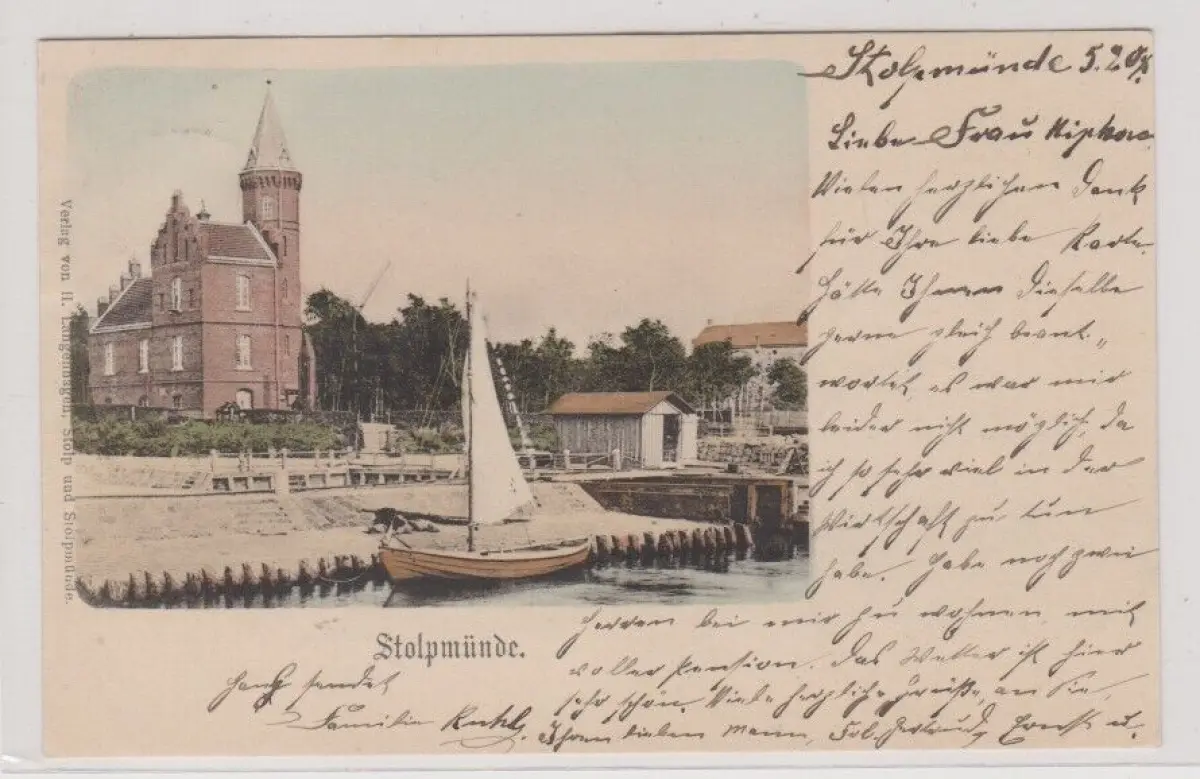 Stolpmünde 5.2.08
Liebe Frau
Vielen herzlichen Dank
für Ihre liebe Karte.
Hätte Ihnen dieselbe
gerne gleich beant-
wortet, es war mir
leider nicht möglich, da
ich so sehr viel in der
Wirtschaft zu tun
habe. Habe noch zwei
Herren bei mir zu wohnen mit
voller Pension. Das Wetter ist hier
sehr schön. Viele herzliche Grüße, an Sie,
Ihren lieben Mann, Frl. Gertrud, Ernst u.
sendet
Familie
Stolpmünde.
Verlag von H. Stolp und Stolpmünde.